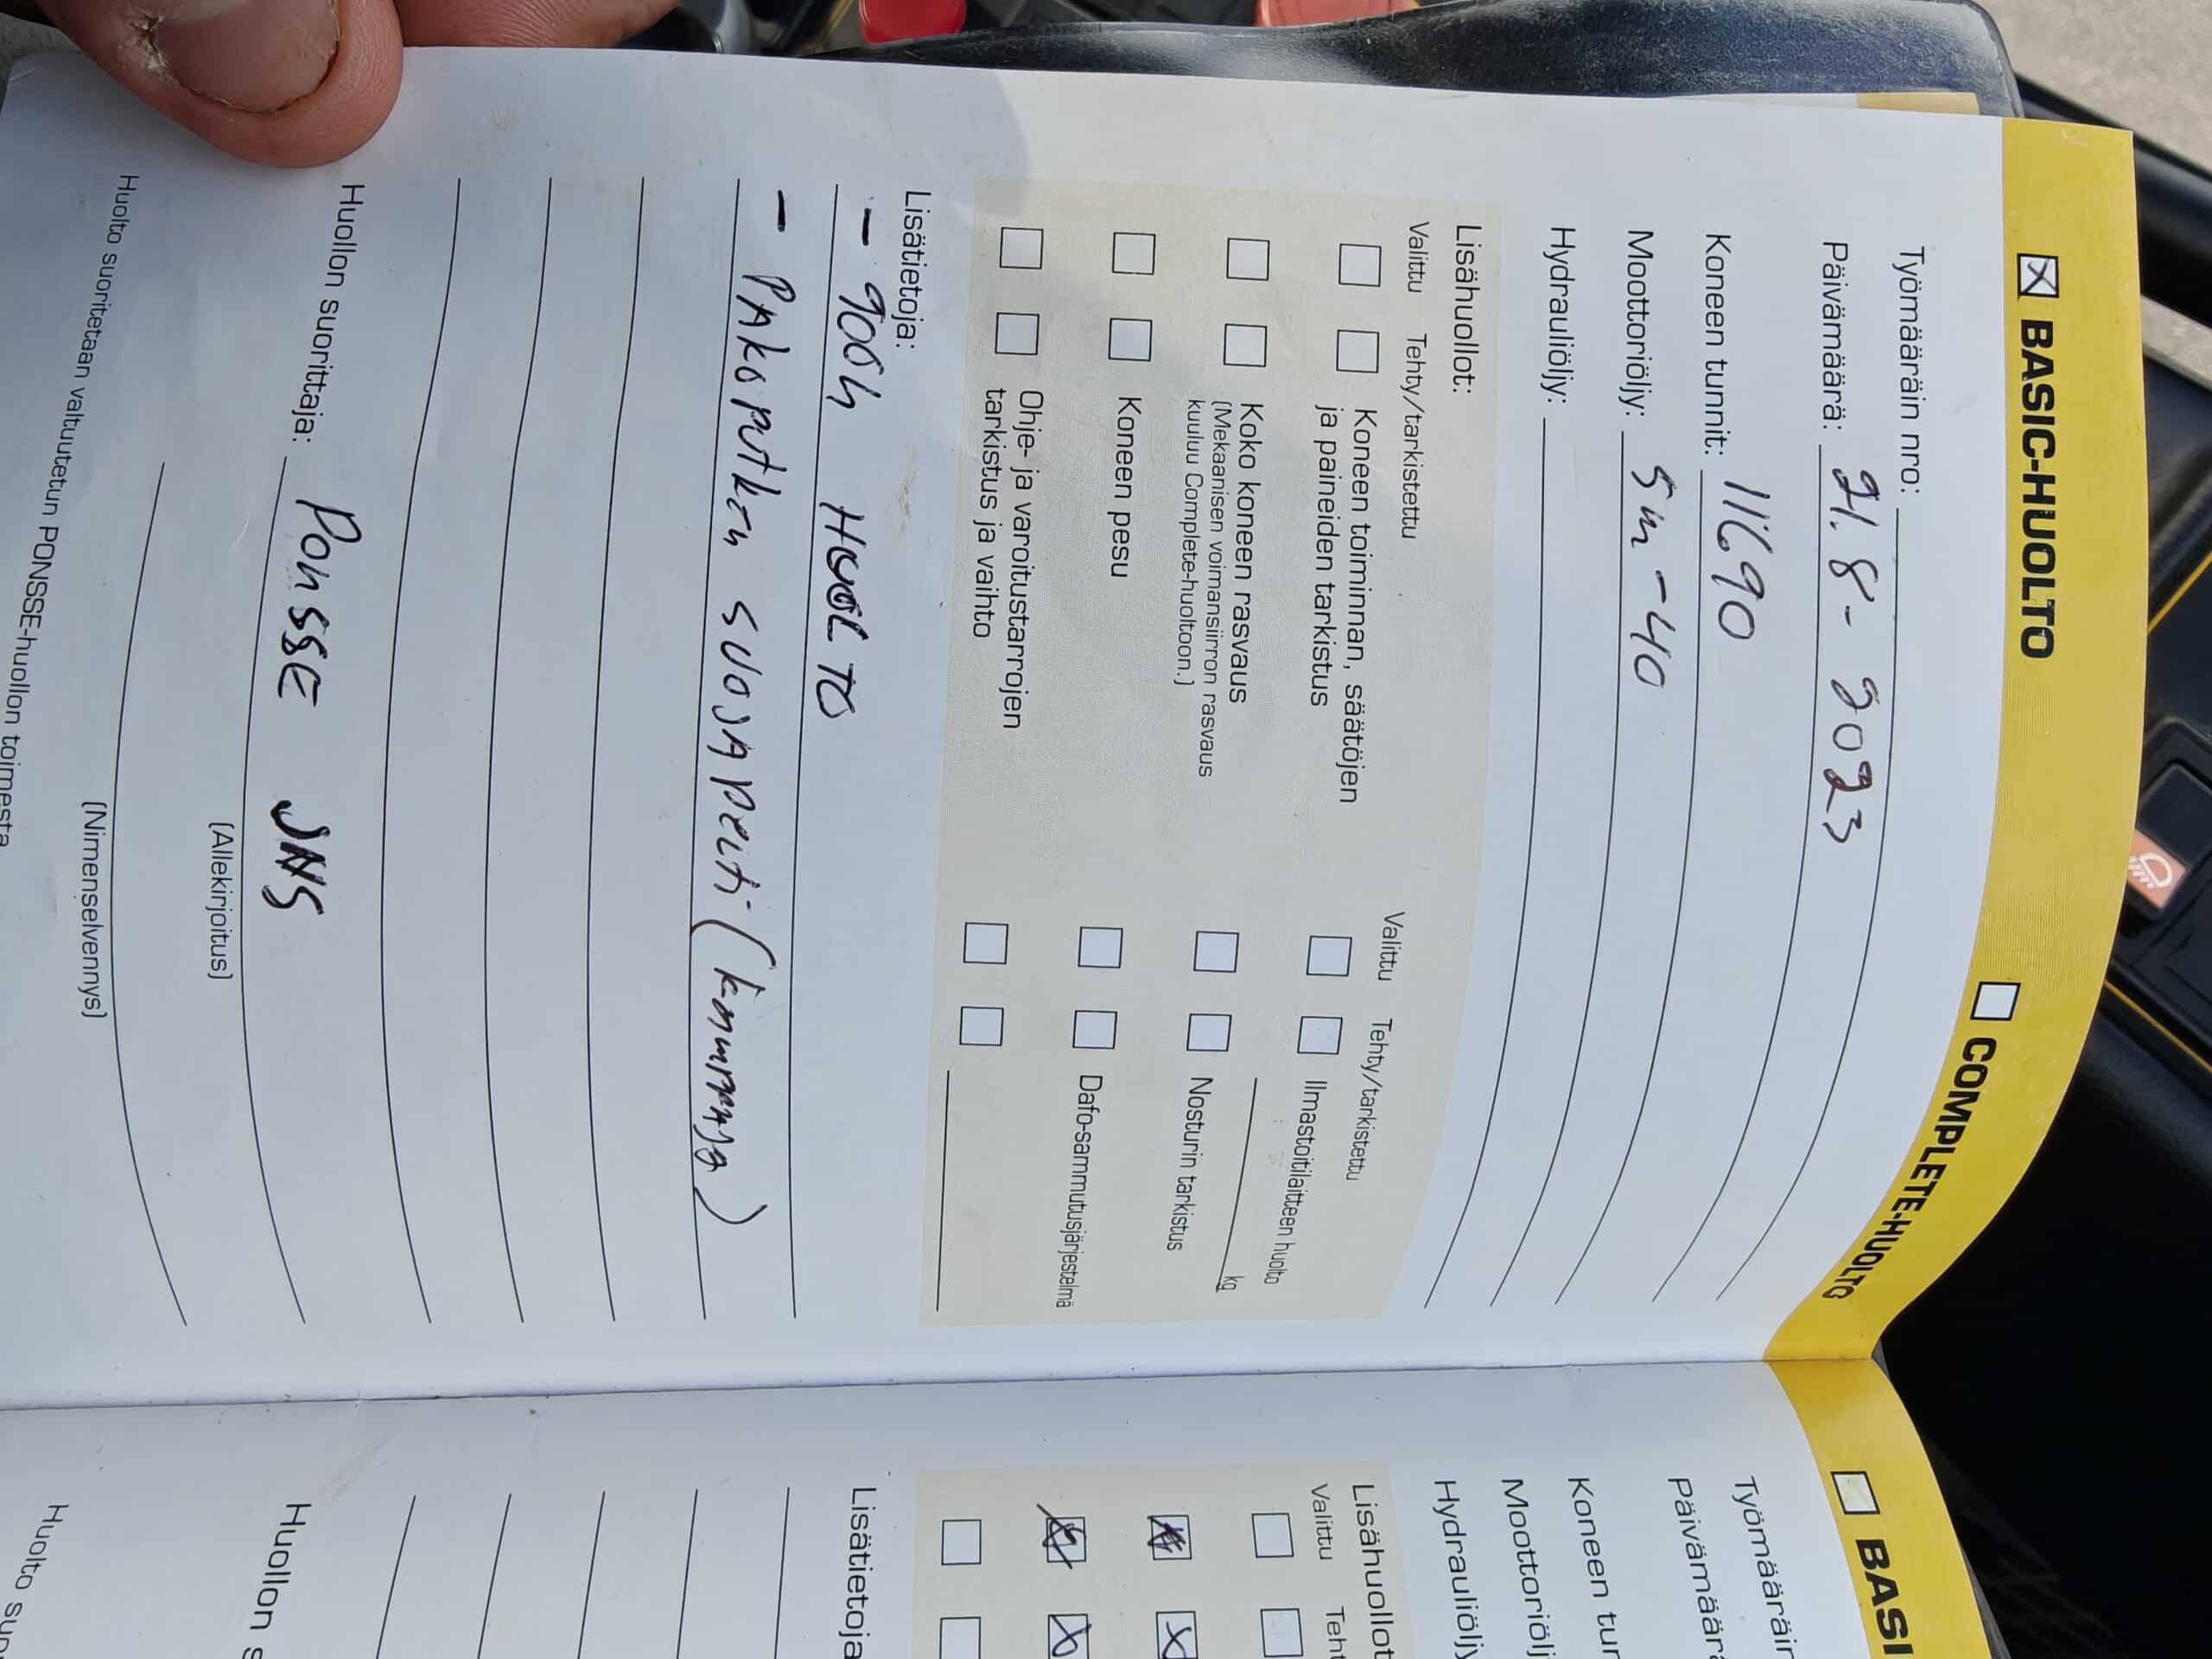 BASIC-HUOLTO COMPLETE-HUOLTO
Työmääräin nro:
Päivämäärä: 21.8- 2023
Koneen tunnit: 11690
Moottoriöljy: 5W-40
Hydrauliöljy:
Lisähuollot:
Valittu Tehty/tarkistettu Valittu Tehty/tarkistettu
Koneen toiminnan, säätöjen
ja paineiden tarkistus
Ilmastoitilaitteen huolto
kg
Koko koneen rasvaus
(Mekaanisen voimansiirron rasvaus
kuuluu Complete-huoltoon.)
Nosturin tarkistus
Koneen pesu
Dafo-sammutusjärjestelmä
Ohje- ja varoitustarrojen
tarkistus ja vaihto
Lisätietoja:
- 900h HUOLTO
- PAKOPUTKEN SUOJAPELTI (KAMPANJA)
Huollon suorittaja: PONSSE JNS
(Allekirjoitus)
(Nimenselvennys)
Huolto suoritetaan valtuutetun PONSSE-huollon toimesta
BASI
Työmääräin
Päivämäärä
Koneen tun
Moottoriölj
Hydrauliöljy
Lisähuollot
Valittu Teht
Lisätietoja
Huollon s
Huolto suo